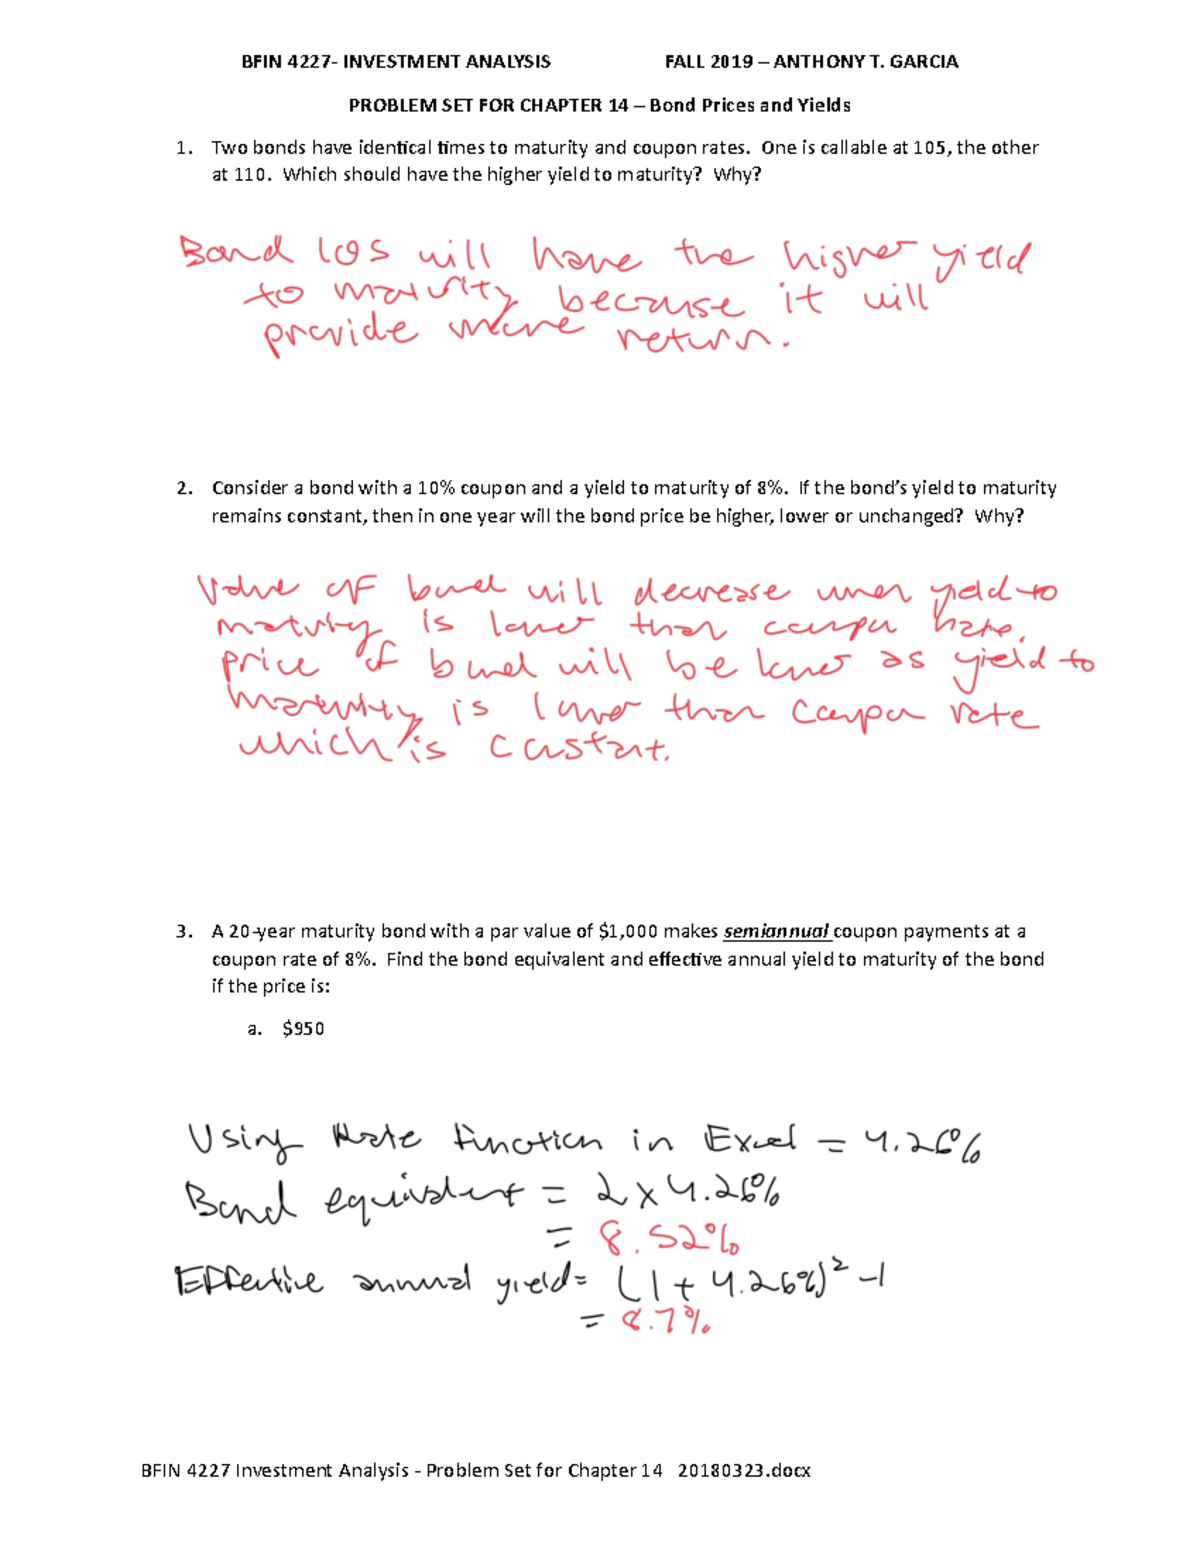 BFIN 4227- INVESTMENT ANALYSIS FALL 2019 – ANTHONY T. GARCIA
PROBLEM SET FOR CHAPTER 14 – Bond Prices and Yields
1. Two bonds have identical times to maturity and coupon rates. One is callable at 105, the other
at 110. Which should have the higher yield to maturity? Why?
Bond 105 will have the higher yield
to maturity because it will
provide more return.
2. Consider a bond with a 10% coupon and a yield to maturity of 8%. If the bond's yield to maturity
remains constant, then in one year will the bond price be higher, lower or unchanged? Why?
Value of bond will decrease when yield to
maturity is lower than coupon rate.
price of bond will be lower as yield to
maturity is lower than coupon rate
which is constant.
3. A 20-year maturity bond with a par value of $1,000 makes semiannual coupon payments at a
coupon rate of 8%. Find the bond equivalent and effective annual yield to maturity of the bond
if the price is:
a. $950
Using Rate function in Excel = 4.26%
Bond equivalent = 2 x 4.26%
= 8.52%
Effective annual yield= (1 + 4.26%)² -1
= 8.7%
BFIN 4227 Investment Analysis - Problem Set for Chapter 14 20180323.docx